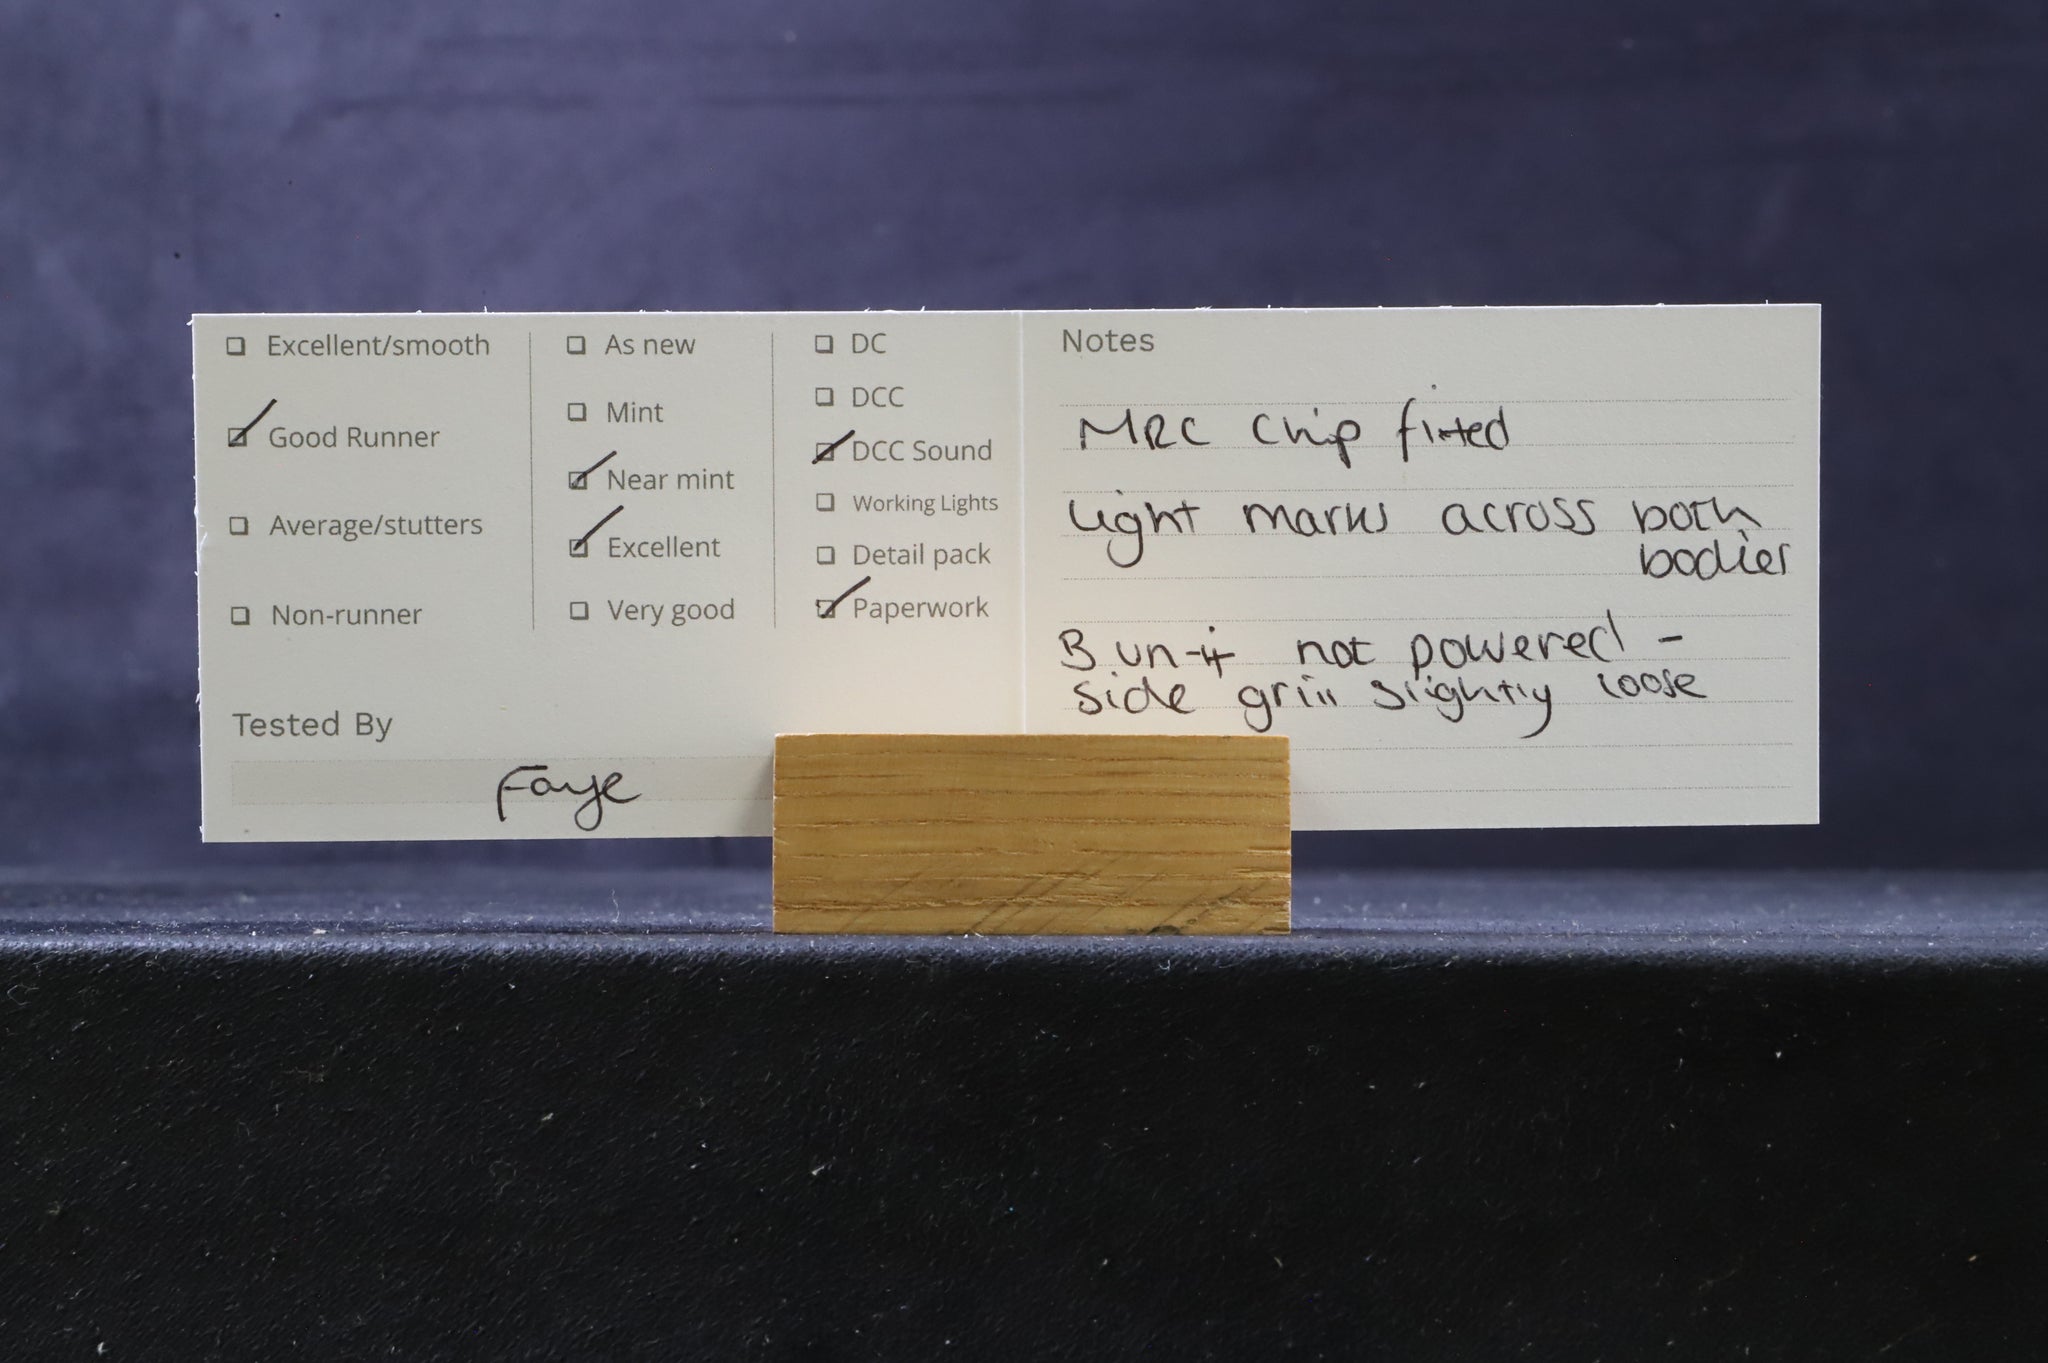 Excellent/smooth
Good Runner
Average/stutters
Non-runner
As new
Mint
Near mint
Excellent
Very good
DC
DCC
DCC Sound
Working Lights
Detail pack
Paperwork
Tested By
Faye
Notes
MRC Chip fitted
Light marks across both
bodies
B unit not powered -
side grill slightly loose